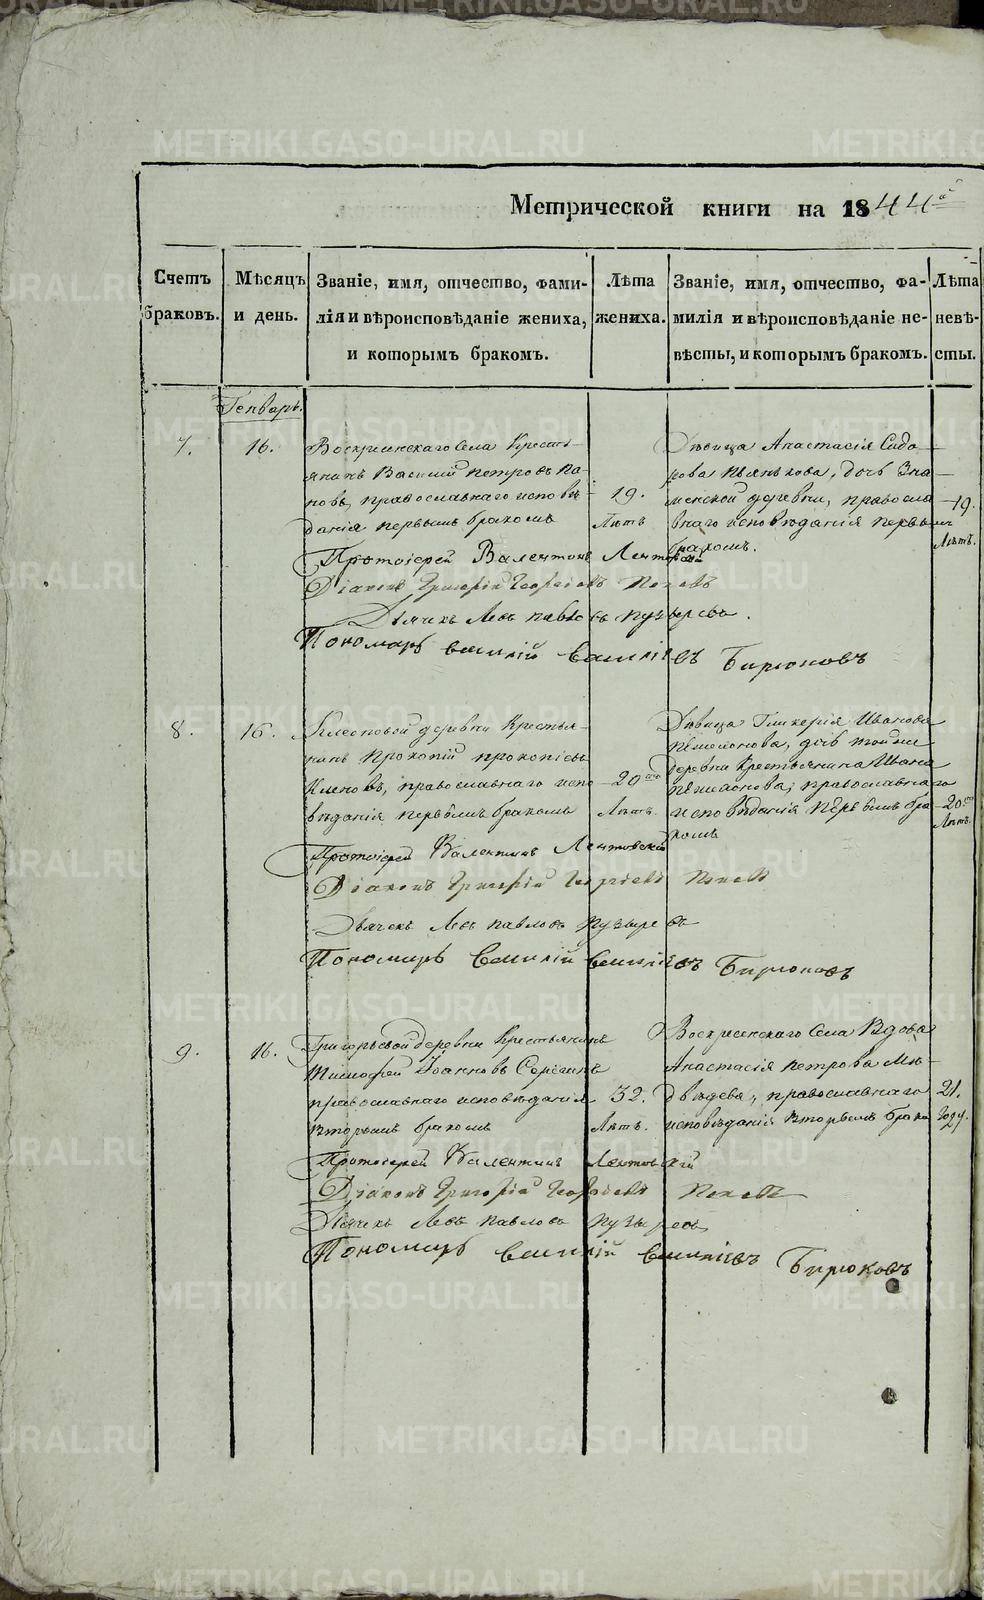 METRIKI.GASO-URAL.RU
Метрической книги на 1844й
Счетъ браковъ.
Мѣсяцъ и день.
Званіе, имя, отчество, фами-
лія и вѣроисповѣданіе жениха,
и которымъ бракомъ.
Лѣта
жениха.
Званіе, имя, отчество, фа-
милія и вѣроисповѣданіе не-
вѣсты, и которымъ бракомъ.
Лѣта
невѣ-
сты.
Генварь.
7.
16.
Воскресенскаго Села Кресть-
янинъ Василий Петровъ По-
повъ, православнаго исповѣ-
данія первымъ бракомъ
19.
Лѣтъ
Дѣвица Анастасія Сидо-
рова дочь Зна-
менской деревни, правосла
внаго исповѣданія первым
бракомъ.
19.
Лѣтъ.
Протоіерей Валентинъ Лентовский
Діаконъ Григорій Георгіевъ Поповъ
Дьячекъ Левъ Павловъ Пузыревъ.
Пономарь Василій Василіевъ Бирюковъ
8.
16.
деревни Крестья-
нинъ Прокопій Прокопіевъ
православнаго испо
вѣданія первымъ бракомъ
20
Лѣтъ.
Дѣвица Гликерія Иванова
дочь той же
деревни Крестьянина Ивана
православнаго
исповѣданія первымъ бра
комъ
20
Лѣтъ.
Протоіерей Валентинъ Лентовский
Діаконъ Григорій Георгіевъ Поповъ
Дьячекъ Левъ Павловъ Пузыревъ
Пономарь Василій Василіевъ Бирюковъ
9.
16.
Григорьевой деревни Крестьянинъ
Тимофей Іоанновъ
православнаго исповѣданія
вторымъ бракомъ
32.
Лѣтъ.
Воскресенскаго Села Вдова
Анастасія Петрова Ме-
двѣдева, православнаго
исповѣданія вторымъ брако
21.
году.
Протоіерей Валентинъ Лентовский
Діаконъ Григорій Георгіевъ Поповъ
Дьячекъ Левъ Павловъ Пузыревъ
Пономарь Василій Василіевъ Бирюковъ